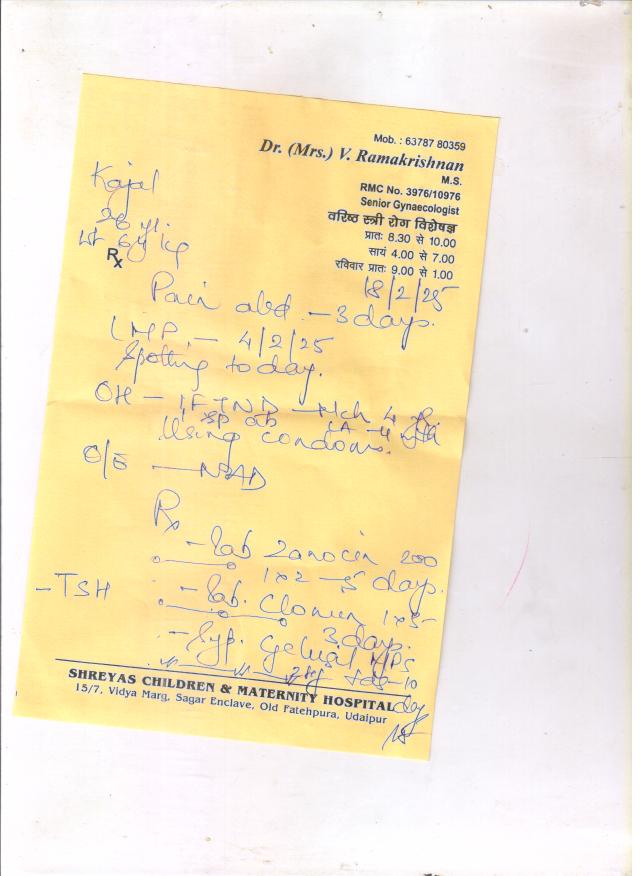 Mob. : 63787 80359
Dr. (Mrs.) V. Ramakrishnan
M.S.
RMC No. 3976/10976
Senior Gynaecologist
वरिष्ठ स्त्री रोग विशेषज्ञ
प्रातः 8.30 से 10.00
सायं 4.00 से 7.00
रविवार प्रातः 9.00 से 1.00
Kajal
26 yr.
Wt 64 kg
Rx
18/2/25
Pain abd. - 3 days.
LMP. - 4/2/25
Spotting today.
OH - 1 FTND - Mch 4
sp ab LA - 4
Using condoms.
O/E - NAD
Rx
- Tab Zanocin 200
1x2 - 5 days.
- TSH
- Tab.
3 days.
- Syp. Gelusil MPS
2 tsf tds - 10
day
SHREYAS CHILDREN & MATERNITY HOSPITAL
15/7, Vidya Marg, Sagar Enclave, Old Fatehpura, Udaipur